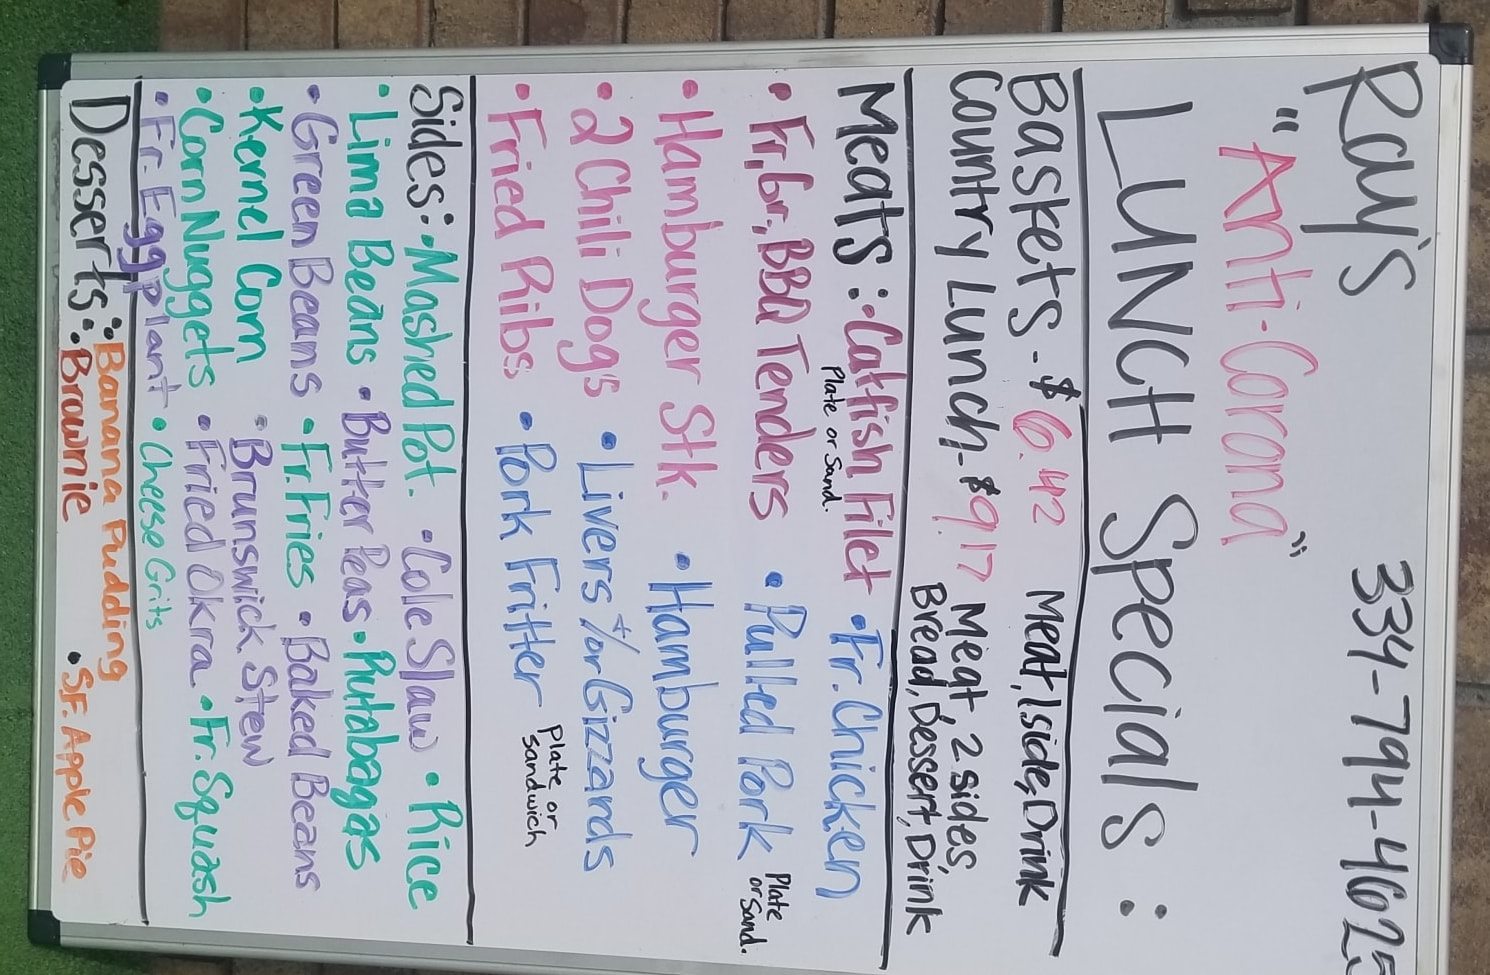 Ray's 334-794-4625
"Anti-Corona"
LUNCH Specials:
Baskets - $6.42 Meat, 1 side, Drink
Country Lunch - $9.17 Meat, 2 sides, Bread, Dessert, Drink
Meats: • Catfish Filet Plate or Sand. • Fr. Chicken
• Fr., Gr., BBQ Tenders • Pulled Pork Plate or Sand.
• Hamburger Stk. • Hamburger
• 2 Chili Dogs • Livers +/or Gizzards
• Fried Ribs • Pork Fritter Plate or Sandwich
Sides: • Mashed Pot. • Cole Slaw • Rice
• Lima Beans • Butter Peas • Rutabagas
• Green Beans • Fr. Fries • Baked Beans
• Kernel Corn • Brunswick Stew
• Corn Nuggets • Fried Okra • Fr. Squash
• Fr. Eggplant • Cheese Grits
Desserts: • Banana Pudding
• Brownie • SF. Apple Pie